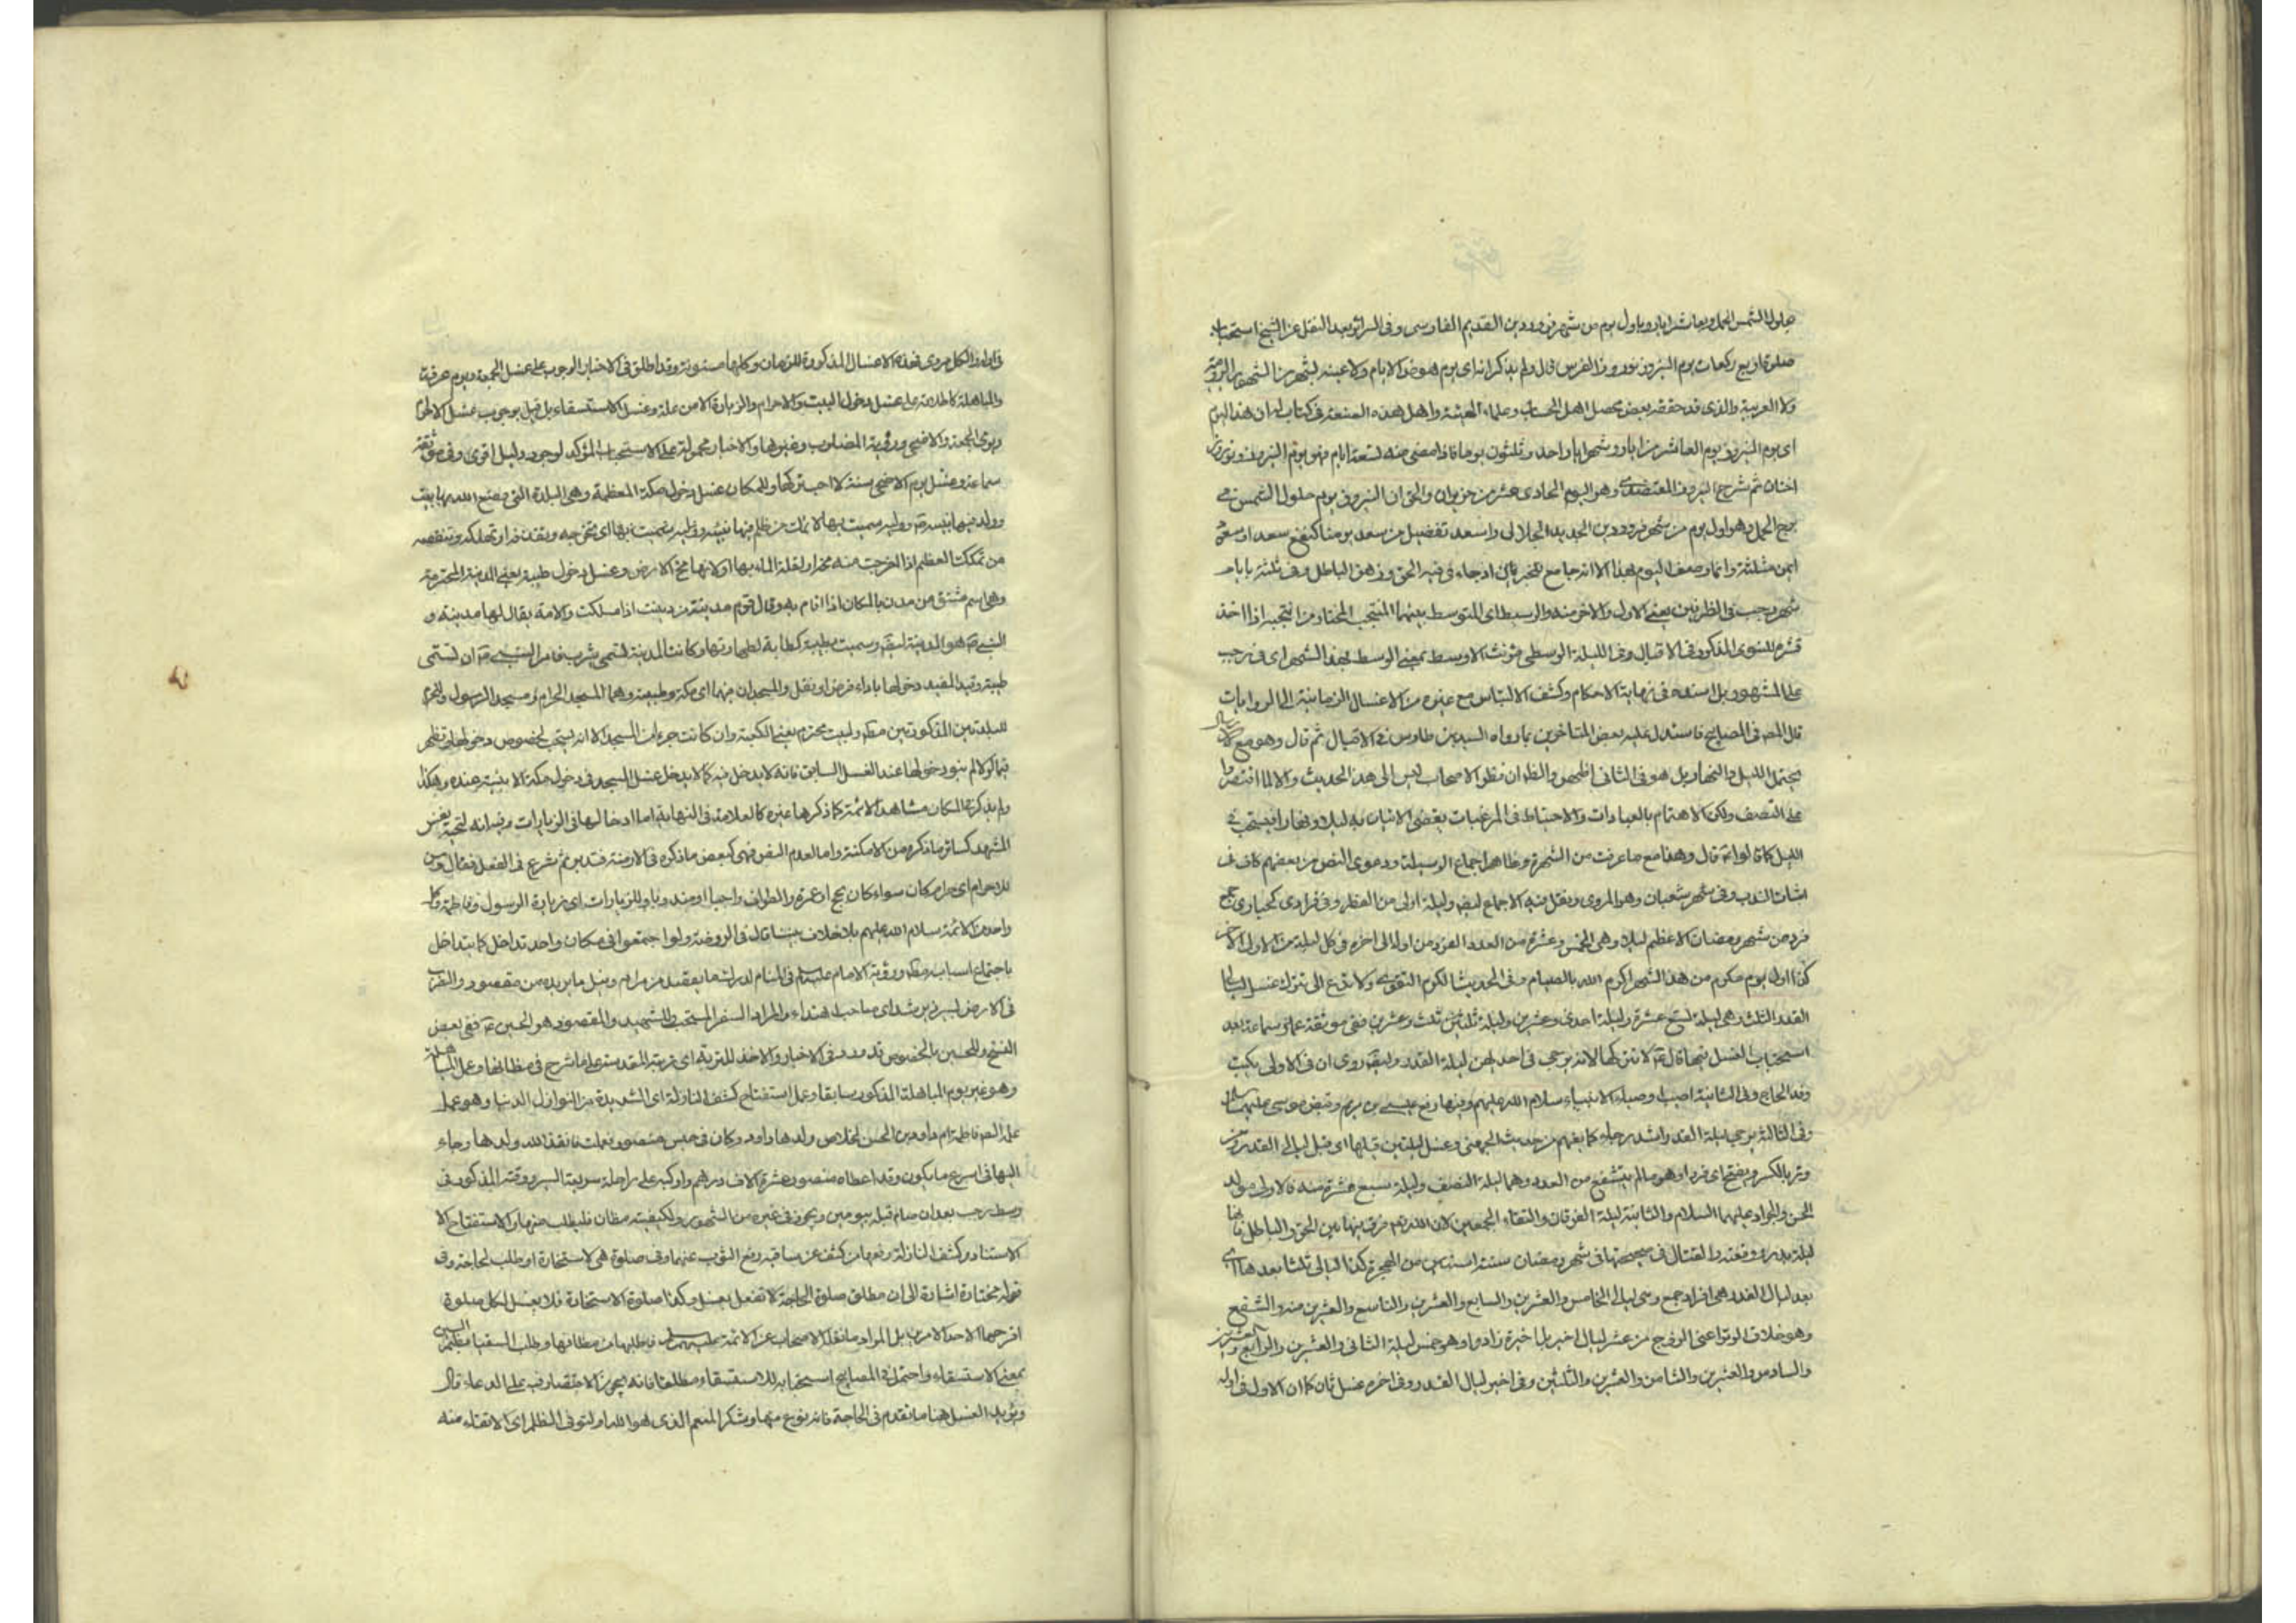 حلول الشمس الحمل وبعاشر ايار وباول يوم من شهر فروردين القديم الفارسى وفى السرائر بعد النقل عن الشيخ استحباب
صلوة اربع ركعات يوم النيروز نوروز الفرس قال ولم يذكر انه اى يوم هو من الايام ولا عينه بشهر من الشهور الرومية
ولا العربية والذى قد حققه بعض محصلى اهل الحساب وعلماء الهيئة واهل هذه الصنعة فى كتاب له ان هذا اليوم
اى يوم النيروز يوم العاشر من ايار وشهر ايار احد وثلثون يوما فاذا مضى منه تسعة ايام فهو يوم النيروز
ثم شرح النيروز المعتضدى وهو اليوم الحادى عشر من حزيران والحق ان النيروز يوم حلول الشمس فى
برج الحمل وهو اول يوم من شهر فروردين الجديد الجلالى واسعد تفضيل من سعد يومنا كنفع سعدا وسعودا
ايمن مثلثة وانما وصف اليوم بهذا الا انه جامع للخيرات اذ جاء فيه الحق وزهق الباطل وفى ثلثة ايام
شهر رجب فى الطرفين يعنى الاول والاخر منه والوسط اى المتوسط بينهما المنتجب المختار من انتجبه اذا اخذ
للنبوى المذكور فى الاقبال وفى الليلة الوسطى مؤنث الاوسط بمعنى الوسط لهذا الشهر اى فى رجب
على المشهور بل اسنده فى نهاية الاحكام وكشف الالتباس مع غيره من الاغسال الزمانية الى الروايات
قال المصـ فى المصابيح فاستدل عليه بعض المتاخرين بما رواه السيد بن طاوس فى الاقبال ثم قال وهو مع
يحتمل الليل والنهار بل هو فى الثانى اظهر والظ ان نظر الاصحاب ليس الى هذا الحديث والا لما اقتصروا
على النصف ولكن الاهتمام بالعبادات والاحتياط فى المرغبات يقتضى الاتيان به ليلا ونهارا فيستحب فى
الليل كما قالوا قال وهذا مع ما عرفت من الشهرة وظاهر اجماع الوسيلة ودعوى النص من بعضهم كاف فى
اثبات الندب وفى شهر شعبان وهو المروى ونقل فيه الاجماع ايضا وليلة اولى من الفطر وفى فرادى كحيارى جمع
فرد من شهر رمضان الاعظم ليلا وهى الخمس وعشرة من العدد الفرد من اوله الى اخره فى كل ليلة من الاولى الاخر
كذا اول يوم مكرم من هذا الشهر اكرم الله بالصيام وفى الحديث ولا تدع الى تترك غسل ليالى
القدر الثلث وهى ليلة تسع عشرة وليلة احدى وعشرين وليلة ثلث وعشرين ففى موثقة سماعة بعد
استحباب الغسل فيها قال لا تتركها لانه يرجى فى احديهن ليلة القدر روى ان فى الاولى يكتب
وفد الحاج وفى الثانية اصيب اوصياء الانبياء سلام الله عليهم وفيها رفع عيسى بن مريم وقبض موسى عليهما السلام
وفى الثالثة يرجى ليلة القدر اشد رجاء كما يفهم من حديث الجهنى وغسل ليلتين قبلها اى قبل ليالى القدر من
وتر بالكسر ويفتح اى فردا وهو مالم يتشفع من العدد وهما ليلة النصف وليلة سبع عشرة منه فالاولى مولد
الحسن والجواد عليهما السلام والثانية ليلة الفرقان والتقاء الجمعين لان الله تعـ فرق فيها بين الحق والباطل فانها
ليلة بدر ووقعته والقتال فى صبيحتها فى شهر رمضان سنة اثنتين من الهجرة كذا ليالى ثلثا بعدها اى
بعد ليالى القدر هى افراد جمع وهى ليالى الخامس والعشرين والسابع والعشرين والتاسع والعشرين منه والشفع
وهو خلاف الوتر اعنى الزوج من عشر ليال اخيرة وهو خمس ليلة الثانى والعشرين والرابع والعشرين
والسادس والعشرين والثامن والعشرين والثلثين وفى اخير ليالى القدر وفى اخره غسل ثان كما ان الاول فى اوله
والكل مروى فهذه الاغسال المذكورة للزمان وكلها مسنونة وقد اطلق فى الاخبار الوجوب على غسل الجمعة ويوم عرفة
والمباهلة كاطلاقه على غسل دخول البيت والاحرام والزيارة الا من علة وغسل الاستسقاء بل قيل بوجوب غسل الاحرام
ويوم الجمعة والاضحى ورؤية المصلوب وغيرها والاخبار محمولة على الاستحباب المؤكد لوجود دليل اقوى وفى موثقة
سماعة وغسل يوم الاضحى سنة لا احب تركها وللمكان غسل دخول مكة المعظمة وهى البلدة التى وضع الله بها بيته
وولد فيها نبيه سميت بها لانها تمك من ظلم فيها اى تخرجه او تهلكه وتنقصه
من تمككت العظم اذا اخرجت منه مخه او لقلة الماء بها او لانها مخ الارض وغسل دخول طيبة يعنى المدينة المحترمة
وهى اسم مشتق من مدن بالمكان اذا اقام به وقال قوم مدينة من دينت اذا ملكت والامة يقال لها مدينة و
هو المدينة ايضـ وسميت بطيبة كطابة لطهارتها وكانت المدينة تسمى يثرب فامر النبى ان تسمى
طيبة وقيد المفيد دخولها باداء فرض او نفل والمسجدان منهما اى مكة وطيبة وهما المسجد الحرام ومسجد الرسول
للبلدتين المذكورتين وبيت محترم يعنى الكعبة وان كانت جزء من المسجد الا انه يستحب لخصوص دخولها
فيما لو لم ينو دخولها عند الغسل السابق فانه لا يدخل فيه كما لا يدخل غسل المسجد فى دخول مكة الا بنية عنده وهكذا
ولم يذكر للمكان مشاهد الائمة كما ذكرها غيره كالعلامة فى النهاية اما ادخالها فى الزيارات
المشهد كسائر ما ذكره من الامكنة واما لعدم النص فهى كبعض ما ذكره فى الازمنة فتدبر ثم شرع فى الفعل فقال
للاحرام اى مكان سواء كان بحج او عمرة والطواف واجبا او مندوبا وللزيارات اى زيارة الرسول وفاطمة وكل
واحد من الائمة سلام الله عليهم بلا خلاف بيننا قال فى الروضة ولو اجتمعوا فى مكان واحد تداخل كما يتداخل
باجتماع اسباب ورؤية الامام فى المنام لدى من مرام ونيل ما يريده من مقصود
فى الارض والمراد السفر المستحب والمقصود هو الحسين ففى بعض
النسخ وللحسين بالخصوص قد ورد فى الاخبار والاخذ للتربة اى تربته المقدسة على ما شرح فى مظانها وعمل المباهلة
وهو غير يوم المباهلة المذكور سابقا وعمل استفتاح كشف النازلة اى الشديدة من النوازل الدنيا وهو عمل
فاطمة ام داود بن الحسن لخلاص ولدها داود وكان فى حبس منصور فعملت فانقذ الله ولدها وجاء
اليها فى اسرع ما يكون وقد اعطاه منصور عشرة الاف درهم واركبه على راحلة سريعة السير ووقته المذكور فى
وسط رجب بعد ان صام قبله بيومين ويجوز فى غيره من الشهور ولكيفيته مظان فليطلب منها والاستفتاح
الاستناد وكشف النازلة رفعها من كشف عن ساقيه رفع الثوب عنهما وفى صلوة هى لاستخارة او طلب لحاجة وفى
قوله مختارة اشارة الى ان مطلق صلوة الحاجة لا تفعل بغسل وكذا صلوة الاستخارة فلا يغسل لكل صلوة
اقترحها لاحد الامرين بل المراد ما نقله الاصحاب عن الائمة عليهم السلام فاطلبها من مظانها وطلب السقيا
بمعنى الاستسقاء واحتمل فى المصابيح استحبابه للاستسقاء مطلقا فانه يجوز الاقتصار فيه على الدعاء قال
ويؤيد الغسل هنا ما تقدم فى الحاجة فانه نوع منها وشكر المنعم الذى هو الله او لتوقى الظلم اى الاتقاء منه